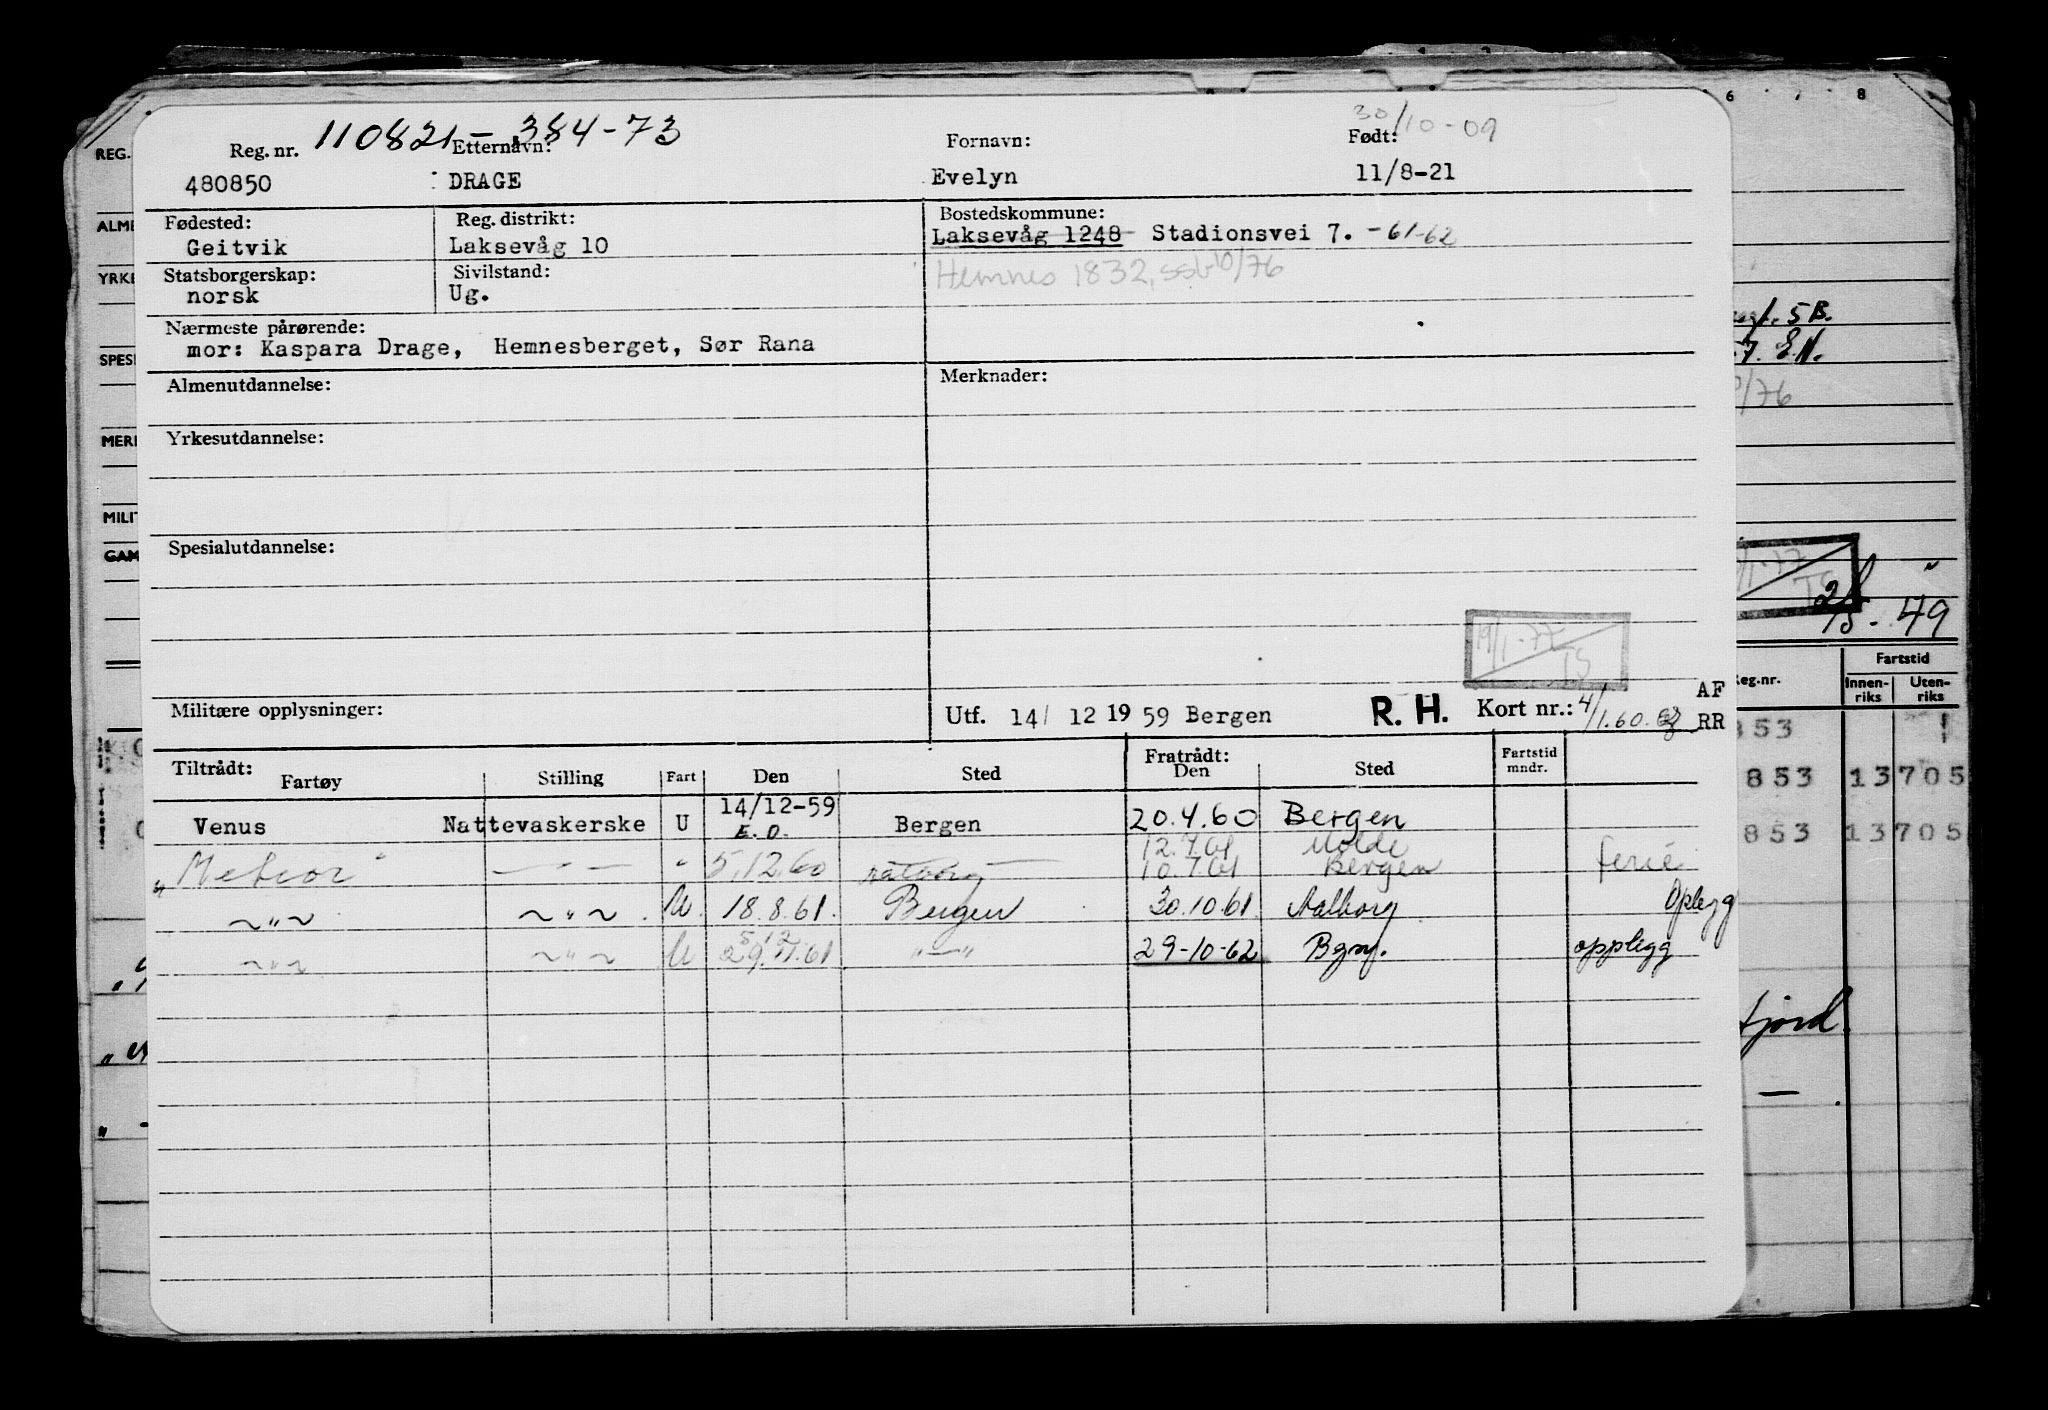 110821-384-73
30/10-09
Reg. nr. Etternavn: Fornavn: Født:
480850 DRAGE Evelyn 11/8-21
Fødested: Reg. distrikt: Bostedskommune:
Geitvik Laksevåg 10 Laksevåg 1248 Stadionsvei 7. -61-62
Statsborgerskap: Sivilstand: Hemnes 1832, ssb 10/76
norsk Ug.
Nærmeste pårørende:
mor: Kaspara Drage, Hemnesberget, Sør Rana
Almenutdannelse: Merknader:
Yrkesutdannelse:
Spesialutdannelse:
19/1-77 TS
Militære opplysninger: Utf. 14/ 12 19 59 Bergen R. H. Kort nr.: 4/1.60. AF RR
Tiltrådt: Fratrådt:
Fartøy Stilling Fart Den Sted Den Sted Fartstid mndr.
Venus Nattevaskerske U 14/12-59 E.O. Bergen 20.4.60 Bergen
12.7.61 Molde
"Meteor" — " — " 5.12.60 10.7.61 Bergen ferie
~"~ ~"~ U. 18.8.61. Bergen 30.10.61. Aalborg Oplegg
~"~ ~"~ U 29.11.61 5 12 "—" 29-10-62 Bgn. opplegg
REG.
ALME
YRKE
SPESI
MERI
MILIT
GAM
6 7 8
5B.
/76
-49
Reg.nr. Fartstid
Innen-riks Uten-riks
853 1
853 13705
853 13705
fjord